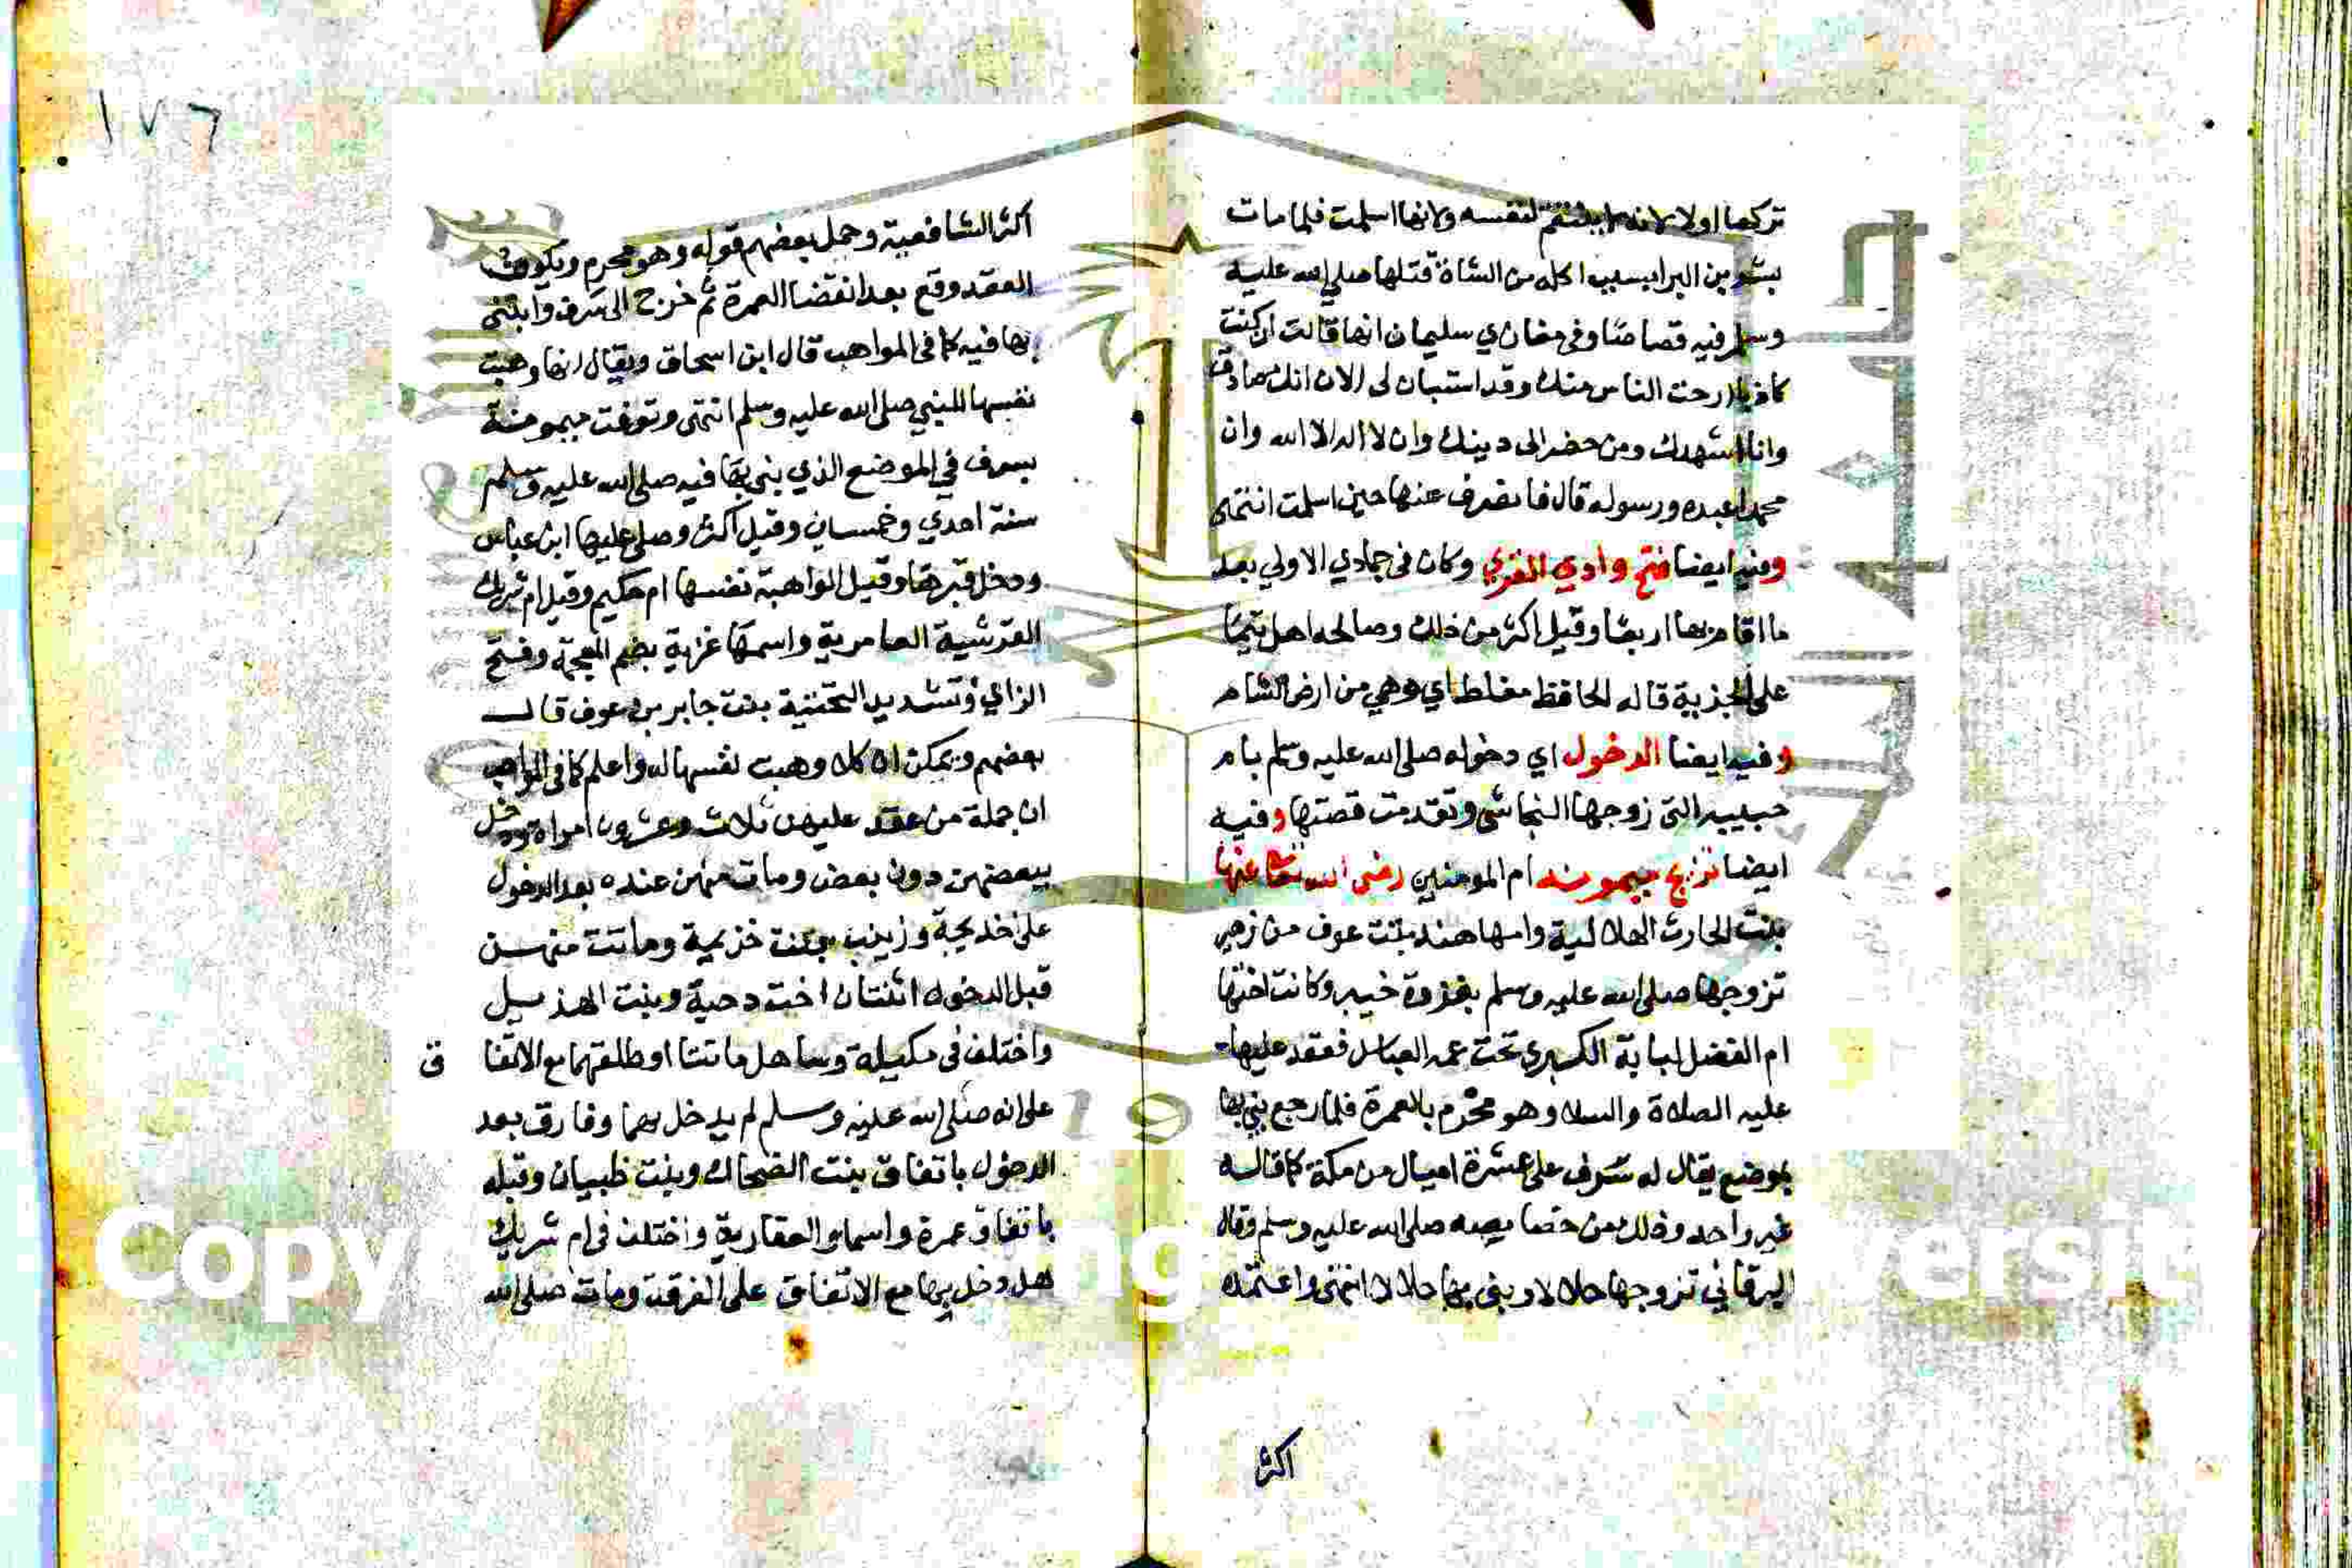 تركها اولا لانه لا ينتقم لنفسه ولانها اسلمت فلما مات
بشر بن البرا بسبب اكله من الشاة قتلها صلى الله عليه
وسلم فيه قصاصا وفي مغازي سليمان انها قالت ان كنت
كاذبا ارحت الناس منك وقد استبان لي الان انك صادق
وانا اشهدك ومن حضر الى دينك وان لا اله الا الله وان
محمدا عبده ورسوله قال فانصرف عنها حين اسلمت انتهى
وفيه ايضا فتح وادي القرى وكان في جمادي الاولي بعد
ما اقام بها اربعا وقيل اكثر من ذلك وصالحه اهل تيما
على الجزية قاله الحافظ مغلطاي وهي من ارض الشام
وفيه ايضا الدخول اي دخوله صلى الله عليه وسلم بام
حبيبه التى زوجها النجاشي وتقدمت قصتها وفيه
ايضا تزوج ميمونه ام المومنين رضى الله تعا عنها
بنت الحارث الهلالية وامها هند بنت عوف من زهير
تزوجها صلى الله عليه وسلم بغزوة خيبر وكانت اختها
ام الفضل لبابة الكبري تحت عمه العباس فعقد عليها
عليه الصلاة والسلا وهو محرم بالعمرة فلما رجع بني بها
بموضع يقال له سرف على عشرة اميال من مكة كما قاله
غير واحد وذلك من خصايصه صلى الله عليه وسلم وقال
البرقاني تزوجها حلالا وبنى بها حلالا انتهى واعتمده
اكثر
١٧٦
اكثر الشافعية وحمل بعضهم قوله وهو محرم ويكون
العقد وقع بعد انقضا العمرة ثم خرج الى سرف وابتنى
بها فيه كما فى المواهب قال ابن اسحاق ويقال انها وهبت
نفسها للنبي صلى الله عليه وسلم انتهى وتوفت ميمونة
بسرف في الموضع الذي بنى بها فيه صلى الله عليه وسلم
سنة احدي وخمسين وقيل اكثر وصلى عليها ابن عباس
ودخل قبرها وقيل الواهبة نفسها ام حكيم وقيل ام شريك
القرشية العامرية واسمها غزية بضم المعجمة وفتح
الزاي وتشديد التحتية بنت جابر بن عوف قال
بعضهم ويمكن ان كلا وهبت نفسها له واعلم كما فى المواهب
ان جملة من عقد عليهن ثلاث وعشرون امراة ودخل
ببعضهن دون بعض ومات منهن عنده بعد الدخول
على خديجة وزينب بنت خزيمة وماتت منهن
قبل الدخول اثنتان اخت دحية وبنت الهذيل
واختلف فى مليكة وسنا هل ماتتا او طلقهما مع الاتفا ق
على انه صلى الله عليه وسلم لم يدخل بهما وفارق بعد
الدخول باتفاق بنت الضحاك وبنت ظبيان وقبله
باتفاق عمرة واسما والغفارية واختلف فى ام شريك
هل دخل بها مع الاتفاق على الفرقة ومات صلى الله